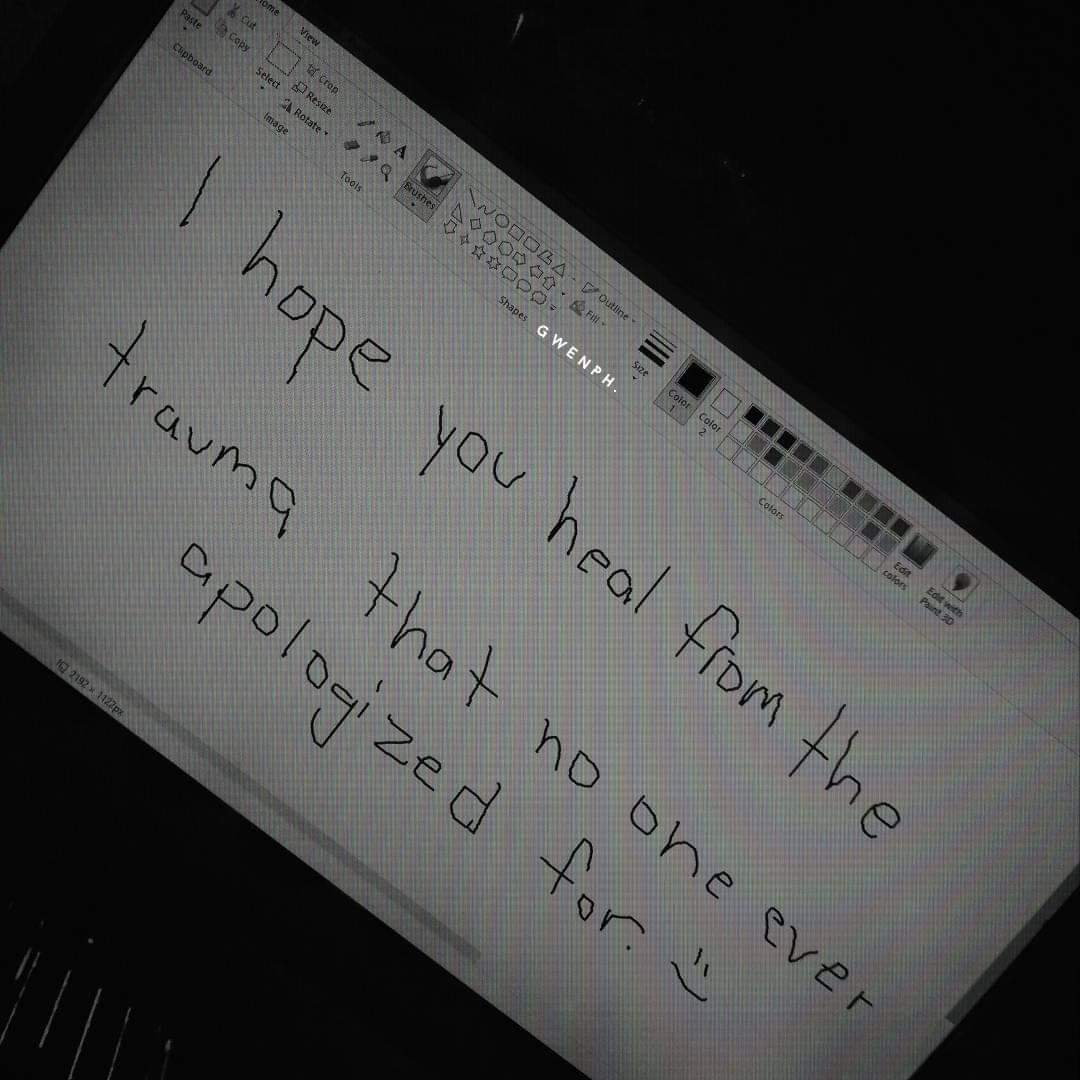 Home View
Paste Cut
Copy
Clipboard
Select
Crop
Resize
Rotate
Image
Tools
A
Brushes
Shapes
Outline
Fill
Size
Color 1
Color 2
Colors
Edit colors
Edit with Paint 3D
GWENPH.
I hope you heal from the
trauma that no one ever
apologized for. :)
2192 × 1122px